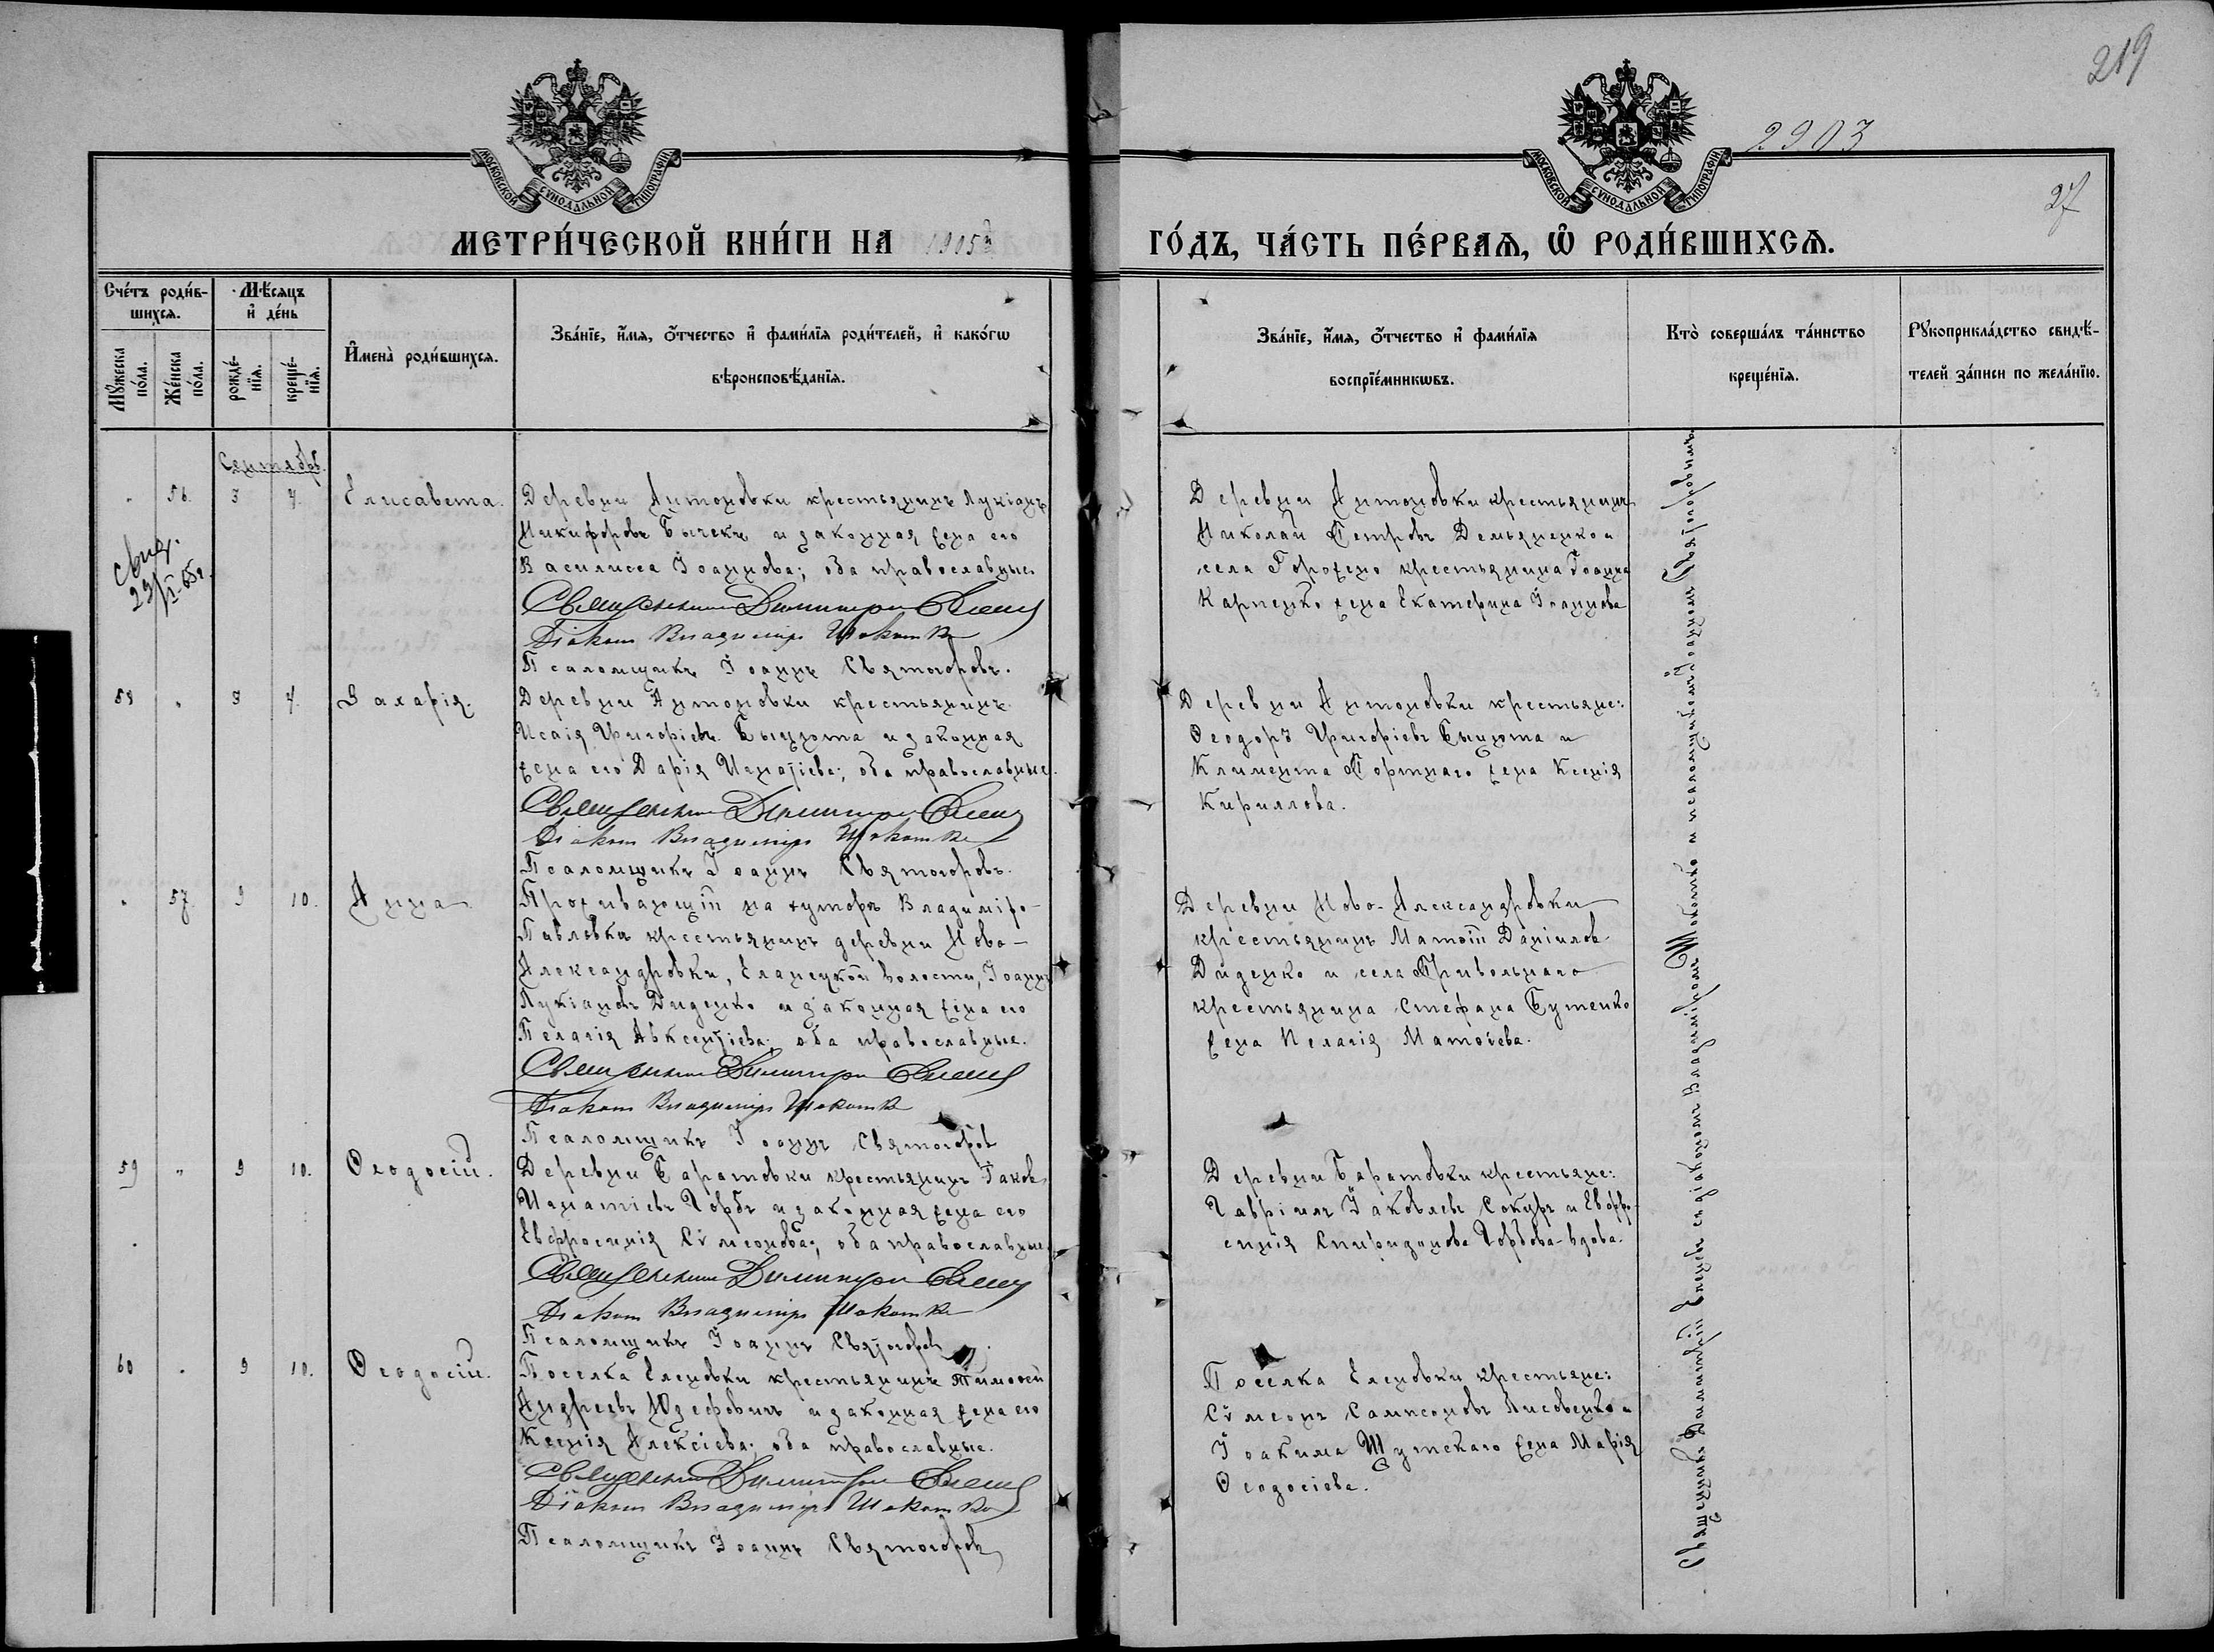 219
2903
27
МОСКОВСКОЙ СѴНОДАЛЬНОЙ ТИПОГРАФІИ
МОСКОВСКОЙ СѴНОДАЛЬНОЙ ТИПОГРАФІИ
МЕТРИ́ЧЕСКОЙ КНИ́ГИ НА 1905й
ГО́ДЪ, ЧА́СТЬ ПЕ́РВАѦ, Ѽ РОДИ́ВШИХСѦ.
Сче́тъ роди́в-
шихсѧ.
Мꙋ́жеска по́ла.
Же́нска по́ла.
Мѣ́сѧцъ
и҆ де́нь
рожде́-
нїѧ.
креще́-
нїѧ.
И҆мена̀ роди́вшихсѧ.
Зва́нїе, и҆́мѧ, ѻ҆́тчество и҆ фами́лїѧ роди́телей, и҆ како́гѡ
вѣроисповѣ́данїѧ.
Зва́нїе, и҆́мѧ, ѻ҆́тчество и҆ фами́лїѧ
воспрїе́мникѡвъ.
Кто̀ соверша́лъ та́инство
креще́нїѧ.
Рꙋкоприкла́дство свидѣ́-
телей за́писи по жела́нїю.
Сентябрь.
" 56. 3 4. Елисавета.
Деревни Антоновки крестьянинъ Лукіанъ
Никифоровъ Бычекъ и законная жена его
Василисса Іоаннова; оба православные.
Священникъ Димитрій Еленевъ
Діаконъ Владиміръ Шокотко
Псаломщикъ Іоаннъ Святогоровъ.
Деревни Антоновки крестьянинъ
Николай Петровъ Демьяненко и
села Горожено крестьянина Іоанна
Карпенко жена Екатерина Іоаннова
свид.
23/IX-65г.
58 " 3 4. Захарія.
Деревни Антоновки крестьянинъ
Исаія Григоріевъ Быцюта и законная
жена его Дарія Игнатіева; оба православные.
Священникъ Димитрій Еленевъ
Діаконъ Владиміръ Шокотко
Псаломщикъ Іоаннъ Святогоровъ.
Деревни Антоновки крестьяне:
Ѳеодоръ Григоріевъ Быцюта и
Климента Портнаго жена Ксенія
Кириллова.
" 57. 9 10. Анна
Проживающій на хуторѣ Владиміро-
Павловкѣ крестьянинъ деревни Ново-
Александровки, Еланецкой волости, Іоаннъ
Лукіановъ Диденко и законная жена его
Пелагія Авксентіева; оба православные.
Священникъ Димитрій Еленевъ
Діаконъ Владиміръ Шокотко
Псаломщикъ Іоаннъ Святогоровъ
Деревни Ново-Александровки
крестьянинъ Матѳій Даніиловъ
Диденко и села Привольнаго
крестьянина Стефана Бутенко
жена Пелагія Матѳіева.
59 " 9 10. Ѳеодосій.
Деревни Баратовки крестьянинъ Іаковъ
Игнатіевъ Горбъ и законная жена его
Евфросинія Сѵмеонова; оба православные.
Священникъ Димитрій Еленевъ
Діаконъ Владиміръ Шокотко
Псаломщикъ Іоаннъ Святогоровъ
Деревни Баратовки крестьяне:
Гавріилъ Іаковлевъ Сокуръ и Евфро-
синія Спиридонова Горбова-вдова.
60 " 9 10. Ѳеодосій.
Поселка Еленовки крестьянинъ Тимоѳей
Андреевъ Юзефовичъ и законная жена его
Ксенія Алексіева; оба православные.
Священникъ Димитрій Еленевъ
Діаконъ Владиміръ Шокотко
Псаломщикъ Іоаннъ Святогоровъ
Поселка Еленовки крестьяне:
Сѵмеонъ Сампсоновъ Лисовенко и
Іоакима Шутскаго жена Марія
Ѳеодосіева.
Священникъ Димитрій Еленевъ съ діакономъ Владиміромъ Шокотко и псаломщикомъ Іоанномъ Святогоровымъ